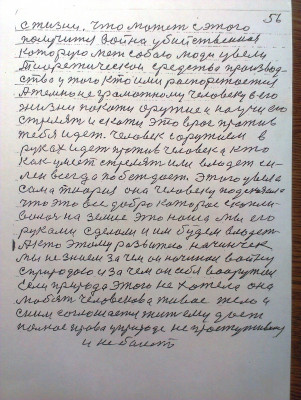 56
с жизни. Что может с этого
получится война убийственная
которую меж собою люди ввели
Теоретическое средство производ-
ство у того кто им распоряжается
А темно не грамотному человеку в его
жизни покажи оружие и научи его
стрелять и скажи это враг против
тебя идет. Человек с оружием в
руках идет против человека кто
как умеет стрелять или владеет си-
лой всегда побеждает. Этого увела
сама теория она человеку подсказала
что это все добро которое скопи-
лось на земле это наша мы его
руками сделали и им будем владеть
А кто этому развитию начинчек
мы не знаем зачем он начинал войну
с природою и зачем он себя вооружил
Сели природа этого не хотела она
любит человекова живое тело и
с ним соглашается жить ему дает
полное права в природе не простуживаться
и не болеть